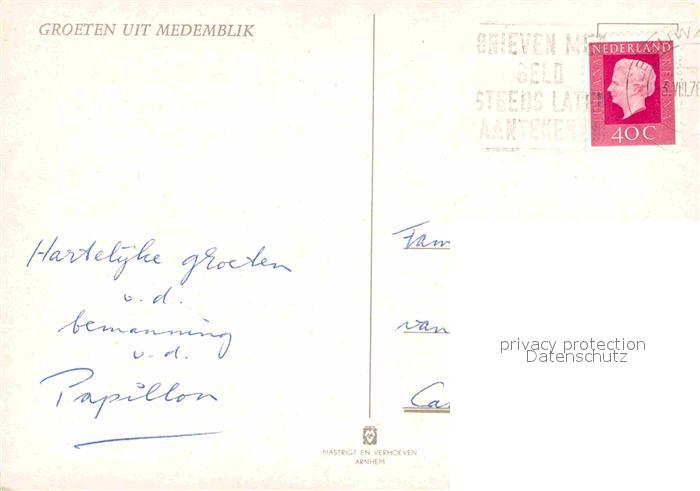 GROETEN UIT MEDEMBLIK
BRIEVEN MET
GELD
STEEDS LATEN
AANTEKENEN
NEDERLAND
JULIANA REGINA
40 C
3.VIII.76
Hartelijke groeten
v.d.
bemanning
v.d.
Papillon
Fam
van
Ca
privacy protection
Datenschutz
MASTRIGT EN VERHOEVEN
ARNHEM